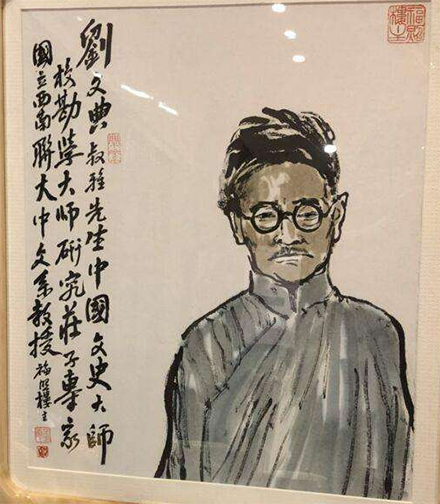 劉文典叔雅先生中國文史大師
校勘學大師研究莊子專家
國立西南聯大中文系教授